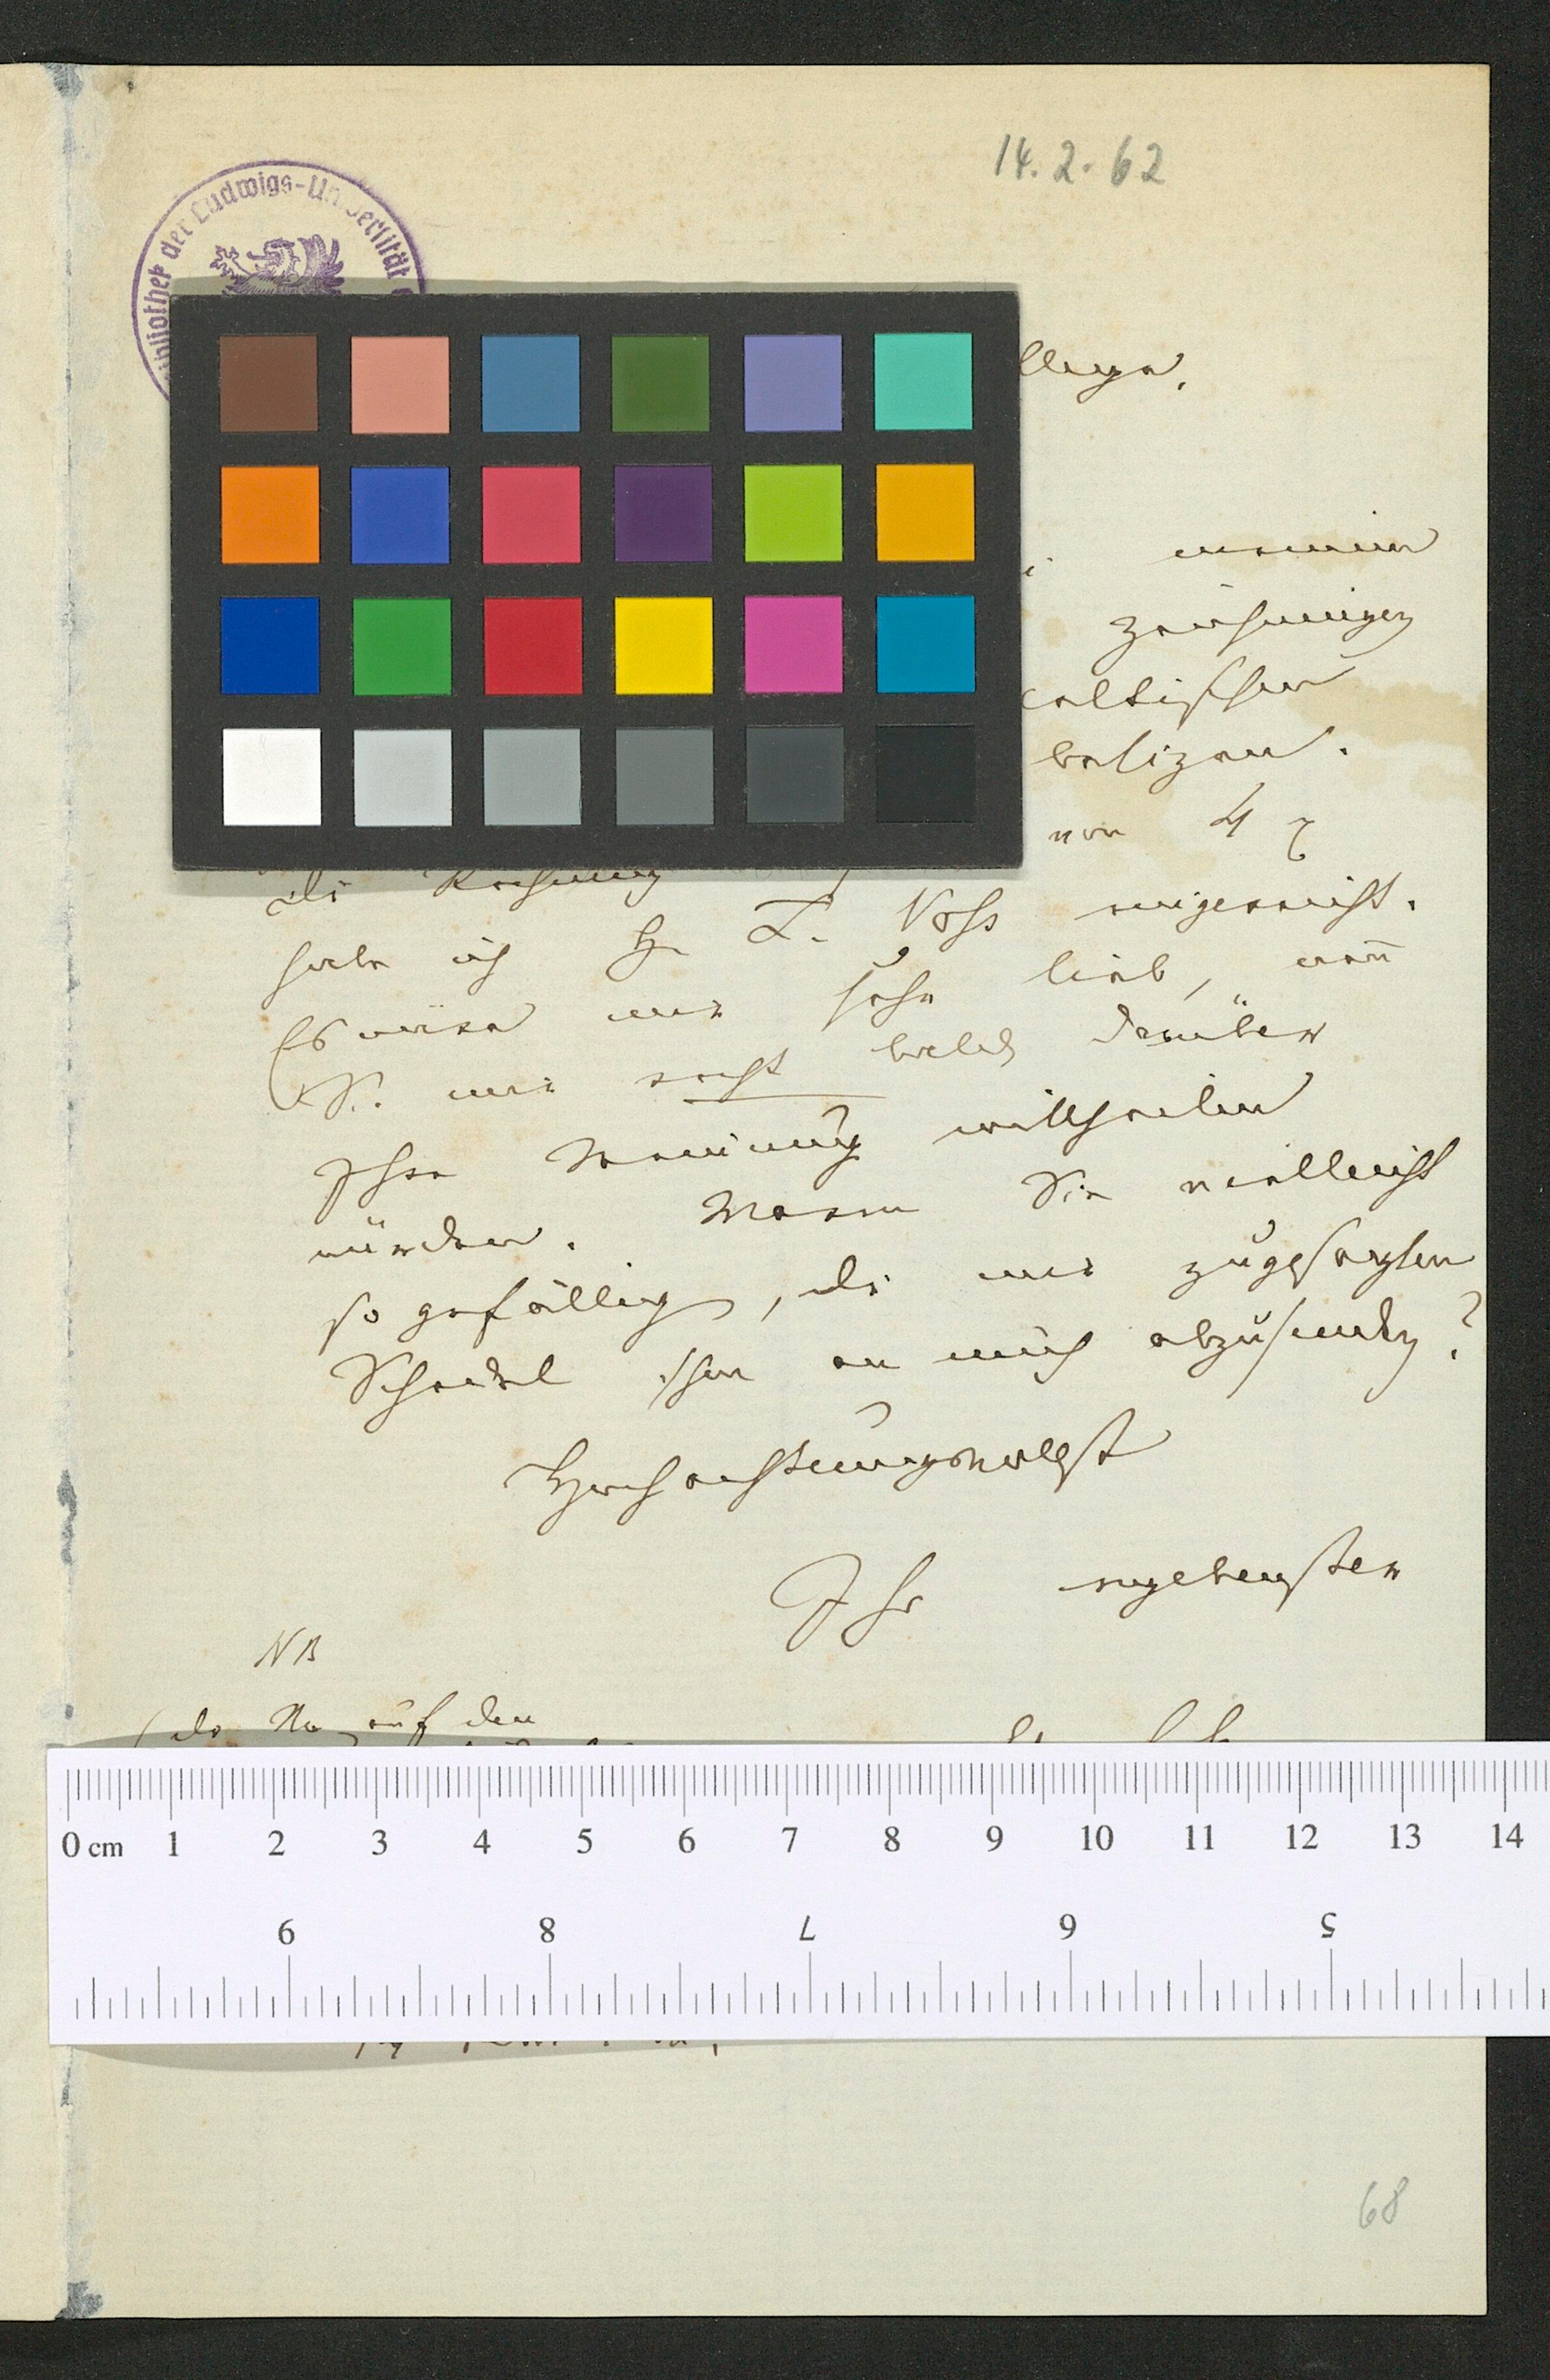 14.2.62
Bibliothek der Ludwigs-Universität
llege,
meinen
Zeichnungen
celtischen
besitzen.
von 4
die Rechnung
habe ich H. L. Voss eingereicht.
Es wäre mir sehr lieb, wenn
S. mir recht bald darüber
Ihre Meinung mittheilen
würden. Waren Sie vielleicht
so gefällig, die mir zugesagten
Schaedel schon an mich abzusenden?
Hochachtungsvollst
Ihr ergebenster
NB
(da No auf den
0 cm 1 2 3 4 5 6 7 8 9 10 11 12 13 14
9 8 7 6 5
68